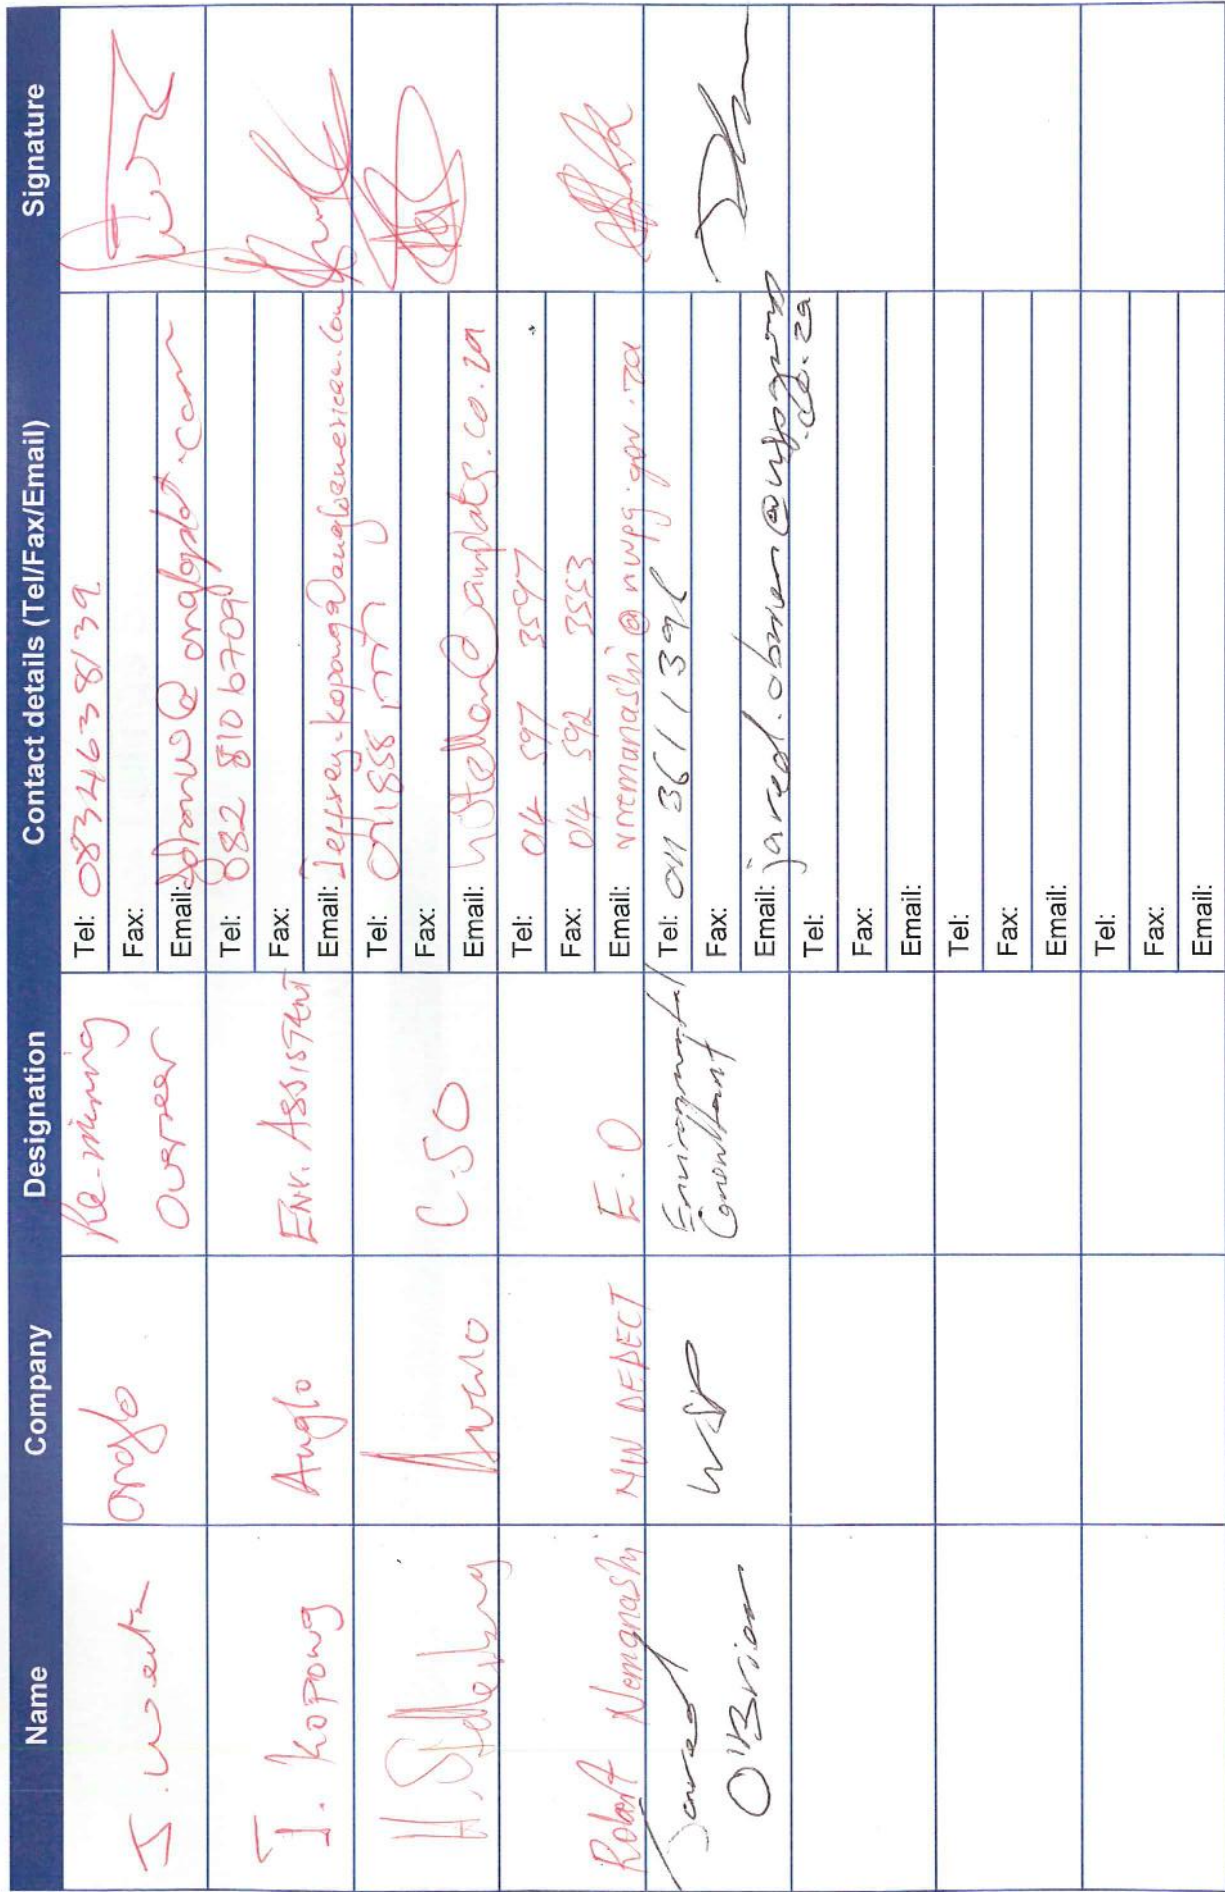 Name Company Designation Contact details (Tel/Fax/Email) Signature
Re-mining
Overseer
Tel: 0834638139
Fax:
Email:
I. Kopong Anglo ENV. ASSISTENT
Tel: 082 810 6709
Fax:
Email: Jeffrey.kopong@angloamerican.com
C.SO
Tel:
Fax:
Email: @amplats.co.za
Robert Nemanashi NW DEDECT E.O
Tel: 014 597 3597
Fax: 014 592 3553
Email: vnemanashi@nwpg.gov.za
Jared
O'Brien
WSP
Environmental
Consultant
Tel: 011 361 1392
Fax:
Email: jared.obrien@wspgroup
.co.za
Tel:
Fax:
Email:
Tel:
Fax:
Email:
Tel:
Fax:
Email: